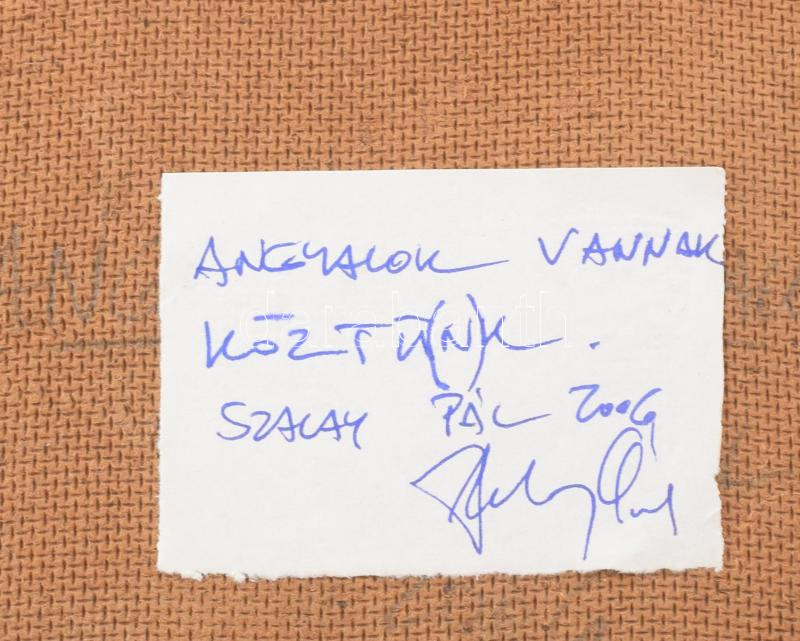 ANGYALOK VANNAK
KÖZTÜ(N)K.
SZALAY PÁL 2006
darabanth